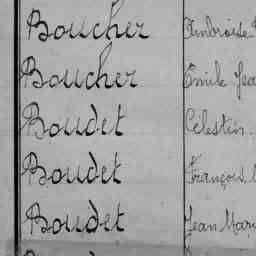 Boucher Ambroise
Boucher Emile Jea
Boudet Célestin
Boudet François
Boudet Jean Mari